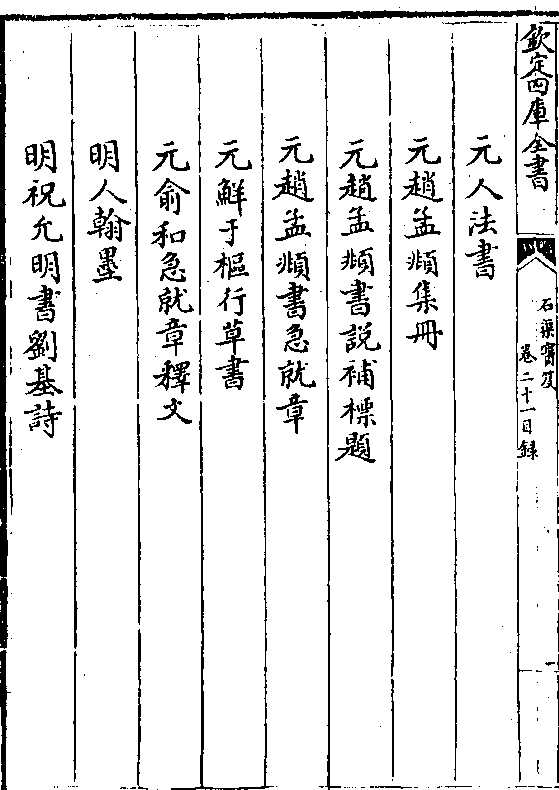 欽定四庫全書
石渠寶笈
卷二十一目録
元人法書
元趙孟頫集冊
元趙孟頫書説補標題
元趙孟頫書急就章
元鮮于樞行草書
元俞和急就章釋文
明人翰墨
明祝允明書劉基詩